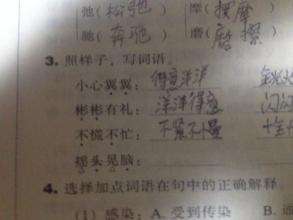 弛(松弛) 摩(摸摩
驰(奔驰) 磨(磨擦
3. 照样子，写词语。
小心翼翼：得意洋洋
彬彬有礼：洋洋得意 闪闪
不慌不忙：不紧不慢
摇头晃脑：
4. 选择加点词语在句中的正确解释
(1) 感染：A. 受到传染 B.